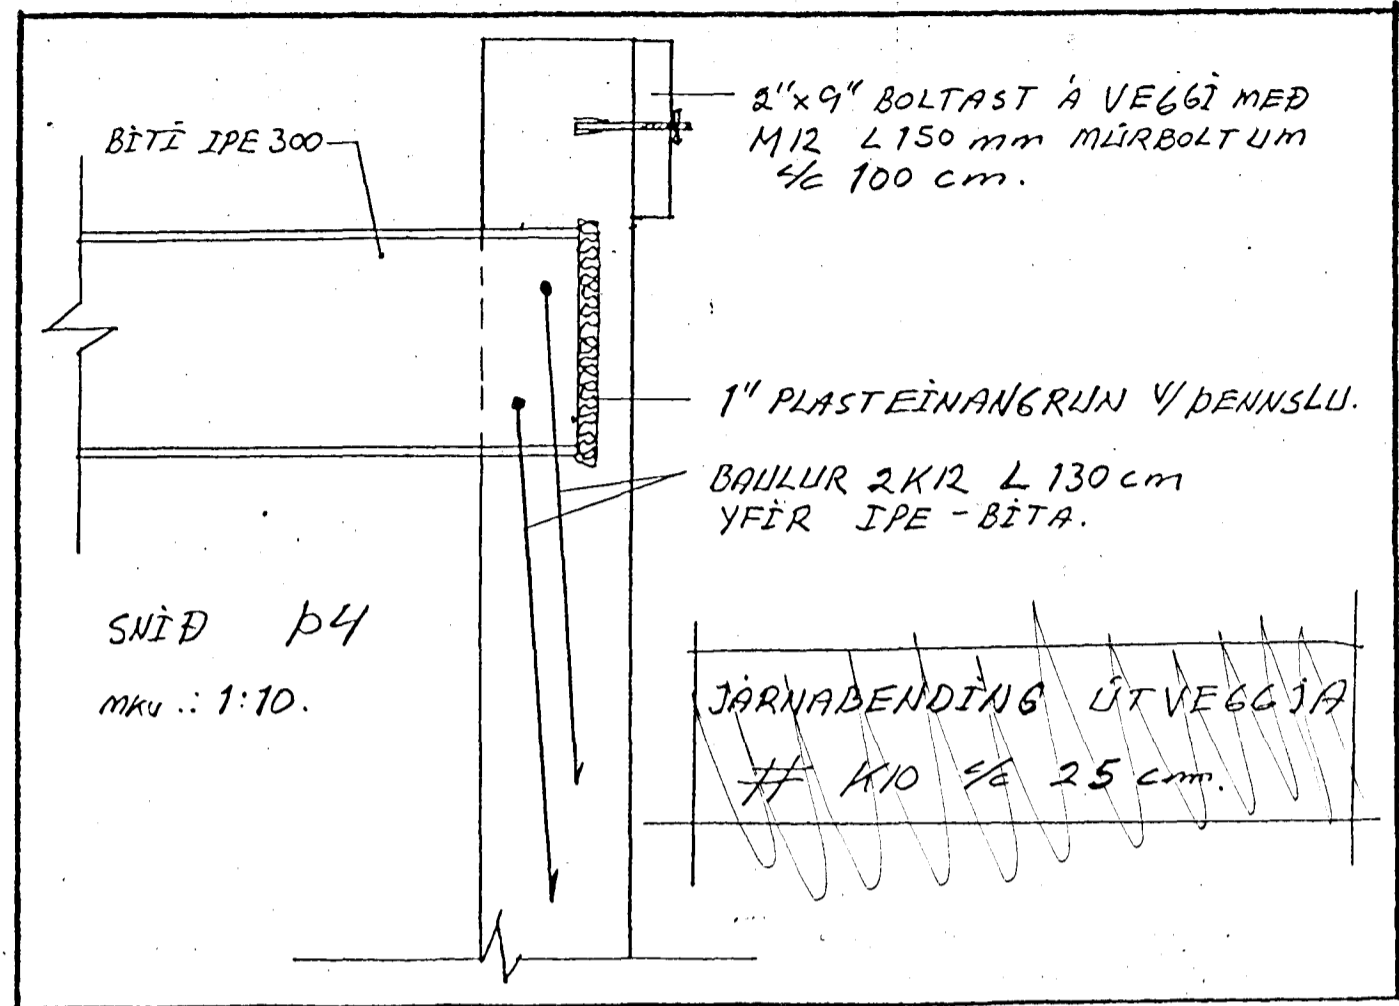 BITI IPE 300
2"x9" BOLTAST Á VEGGI MEÐ
M12 L 150 mm MÚRBOLTUM
c/c 100 cm.
1" PLASTEINANGRUN V/ÞENNSLU.
BAULUR 2K12 L 130 cm
YFIR IPE - BITA.
SNIÐ Þ4
MKV.: 1:10.
JÁRNABENDING ÚTVEGGJA
# K10 c/c 25 cm.